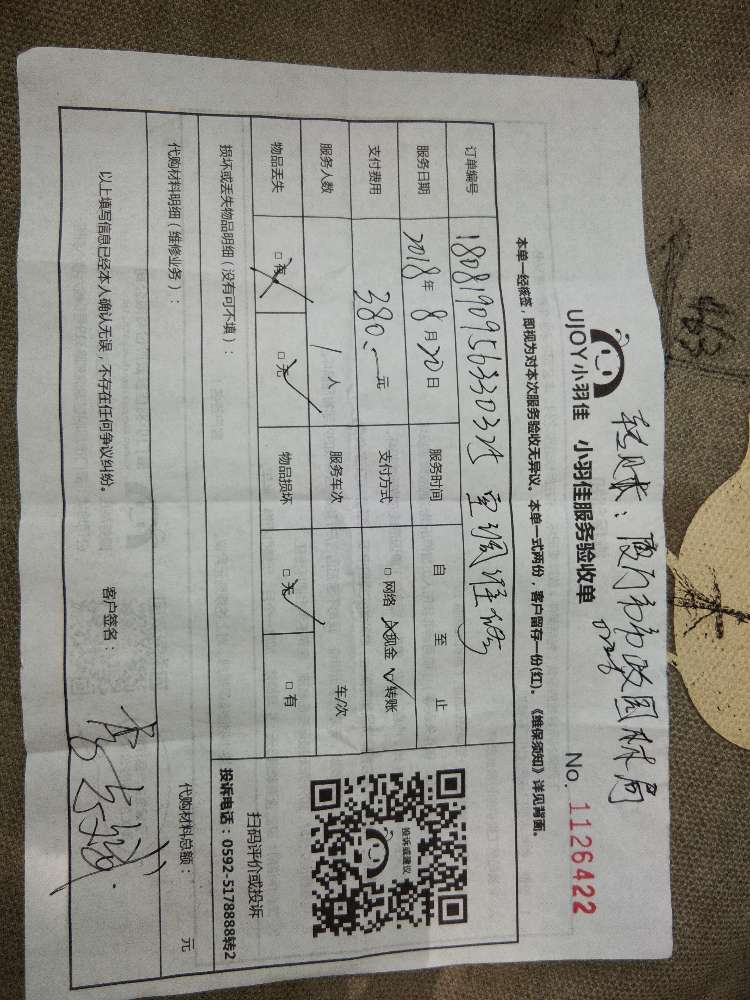 转账：厦门市市政园林局
UJOY小羽佳 小羽佳服务验收单 No. 1126422
本单一经核签，即视为对本次服务验收无异议。本单一式两份，客户留存一份(红)。《维保须知》详见背面。
订单编号
服务日期 2018年 8月20日 服务时间 自 至 止
支付费用 380 元 支付方式 □网络 现金 ☑转账
服务人数 1 人 服务车次 车/次
物品丢失 □有 □无✓ 物品损坏 □无✓ □有
损坏或丢失物品明细（没有可不填）：
投诉或建议
扫码评价或投诉
投诉电话：0592-5178888转2
代购材料明细（维修业务）： 代购材料总额： 元
以上填写信息已经本人确认无误，不存在任何争议纠纷。 客户签名：